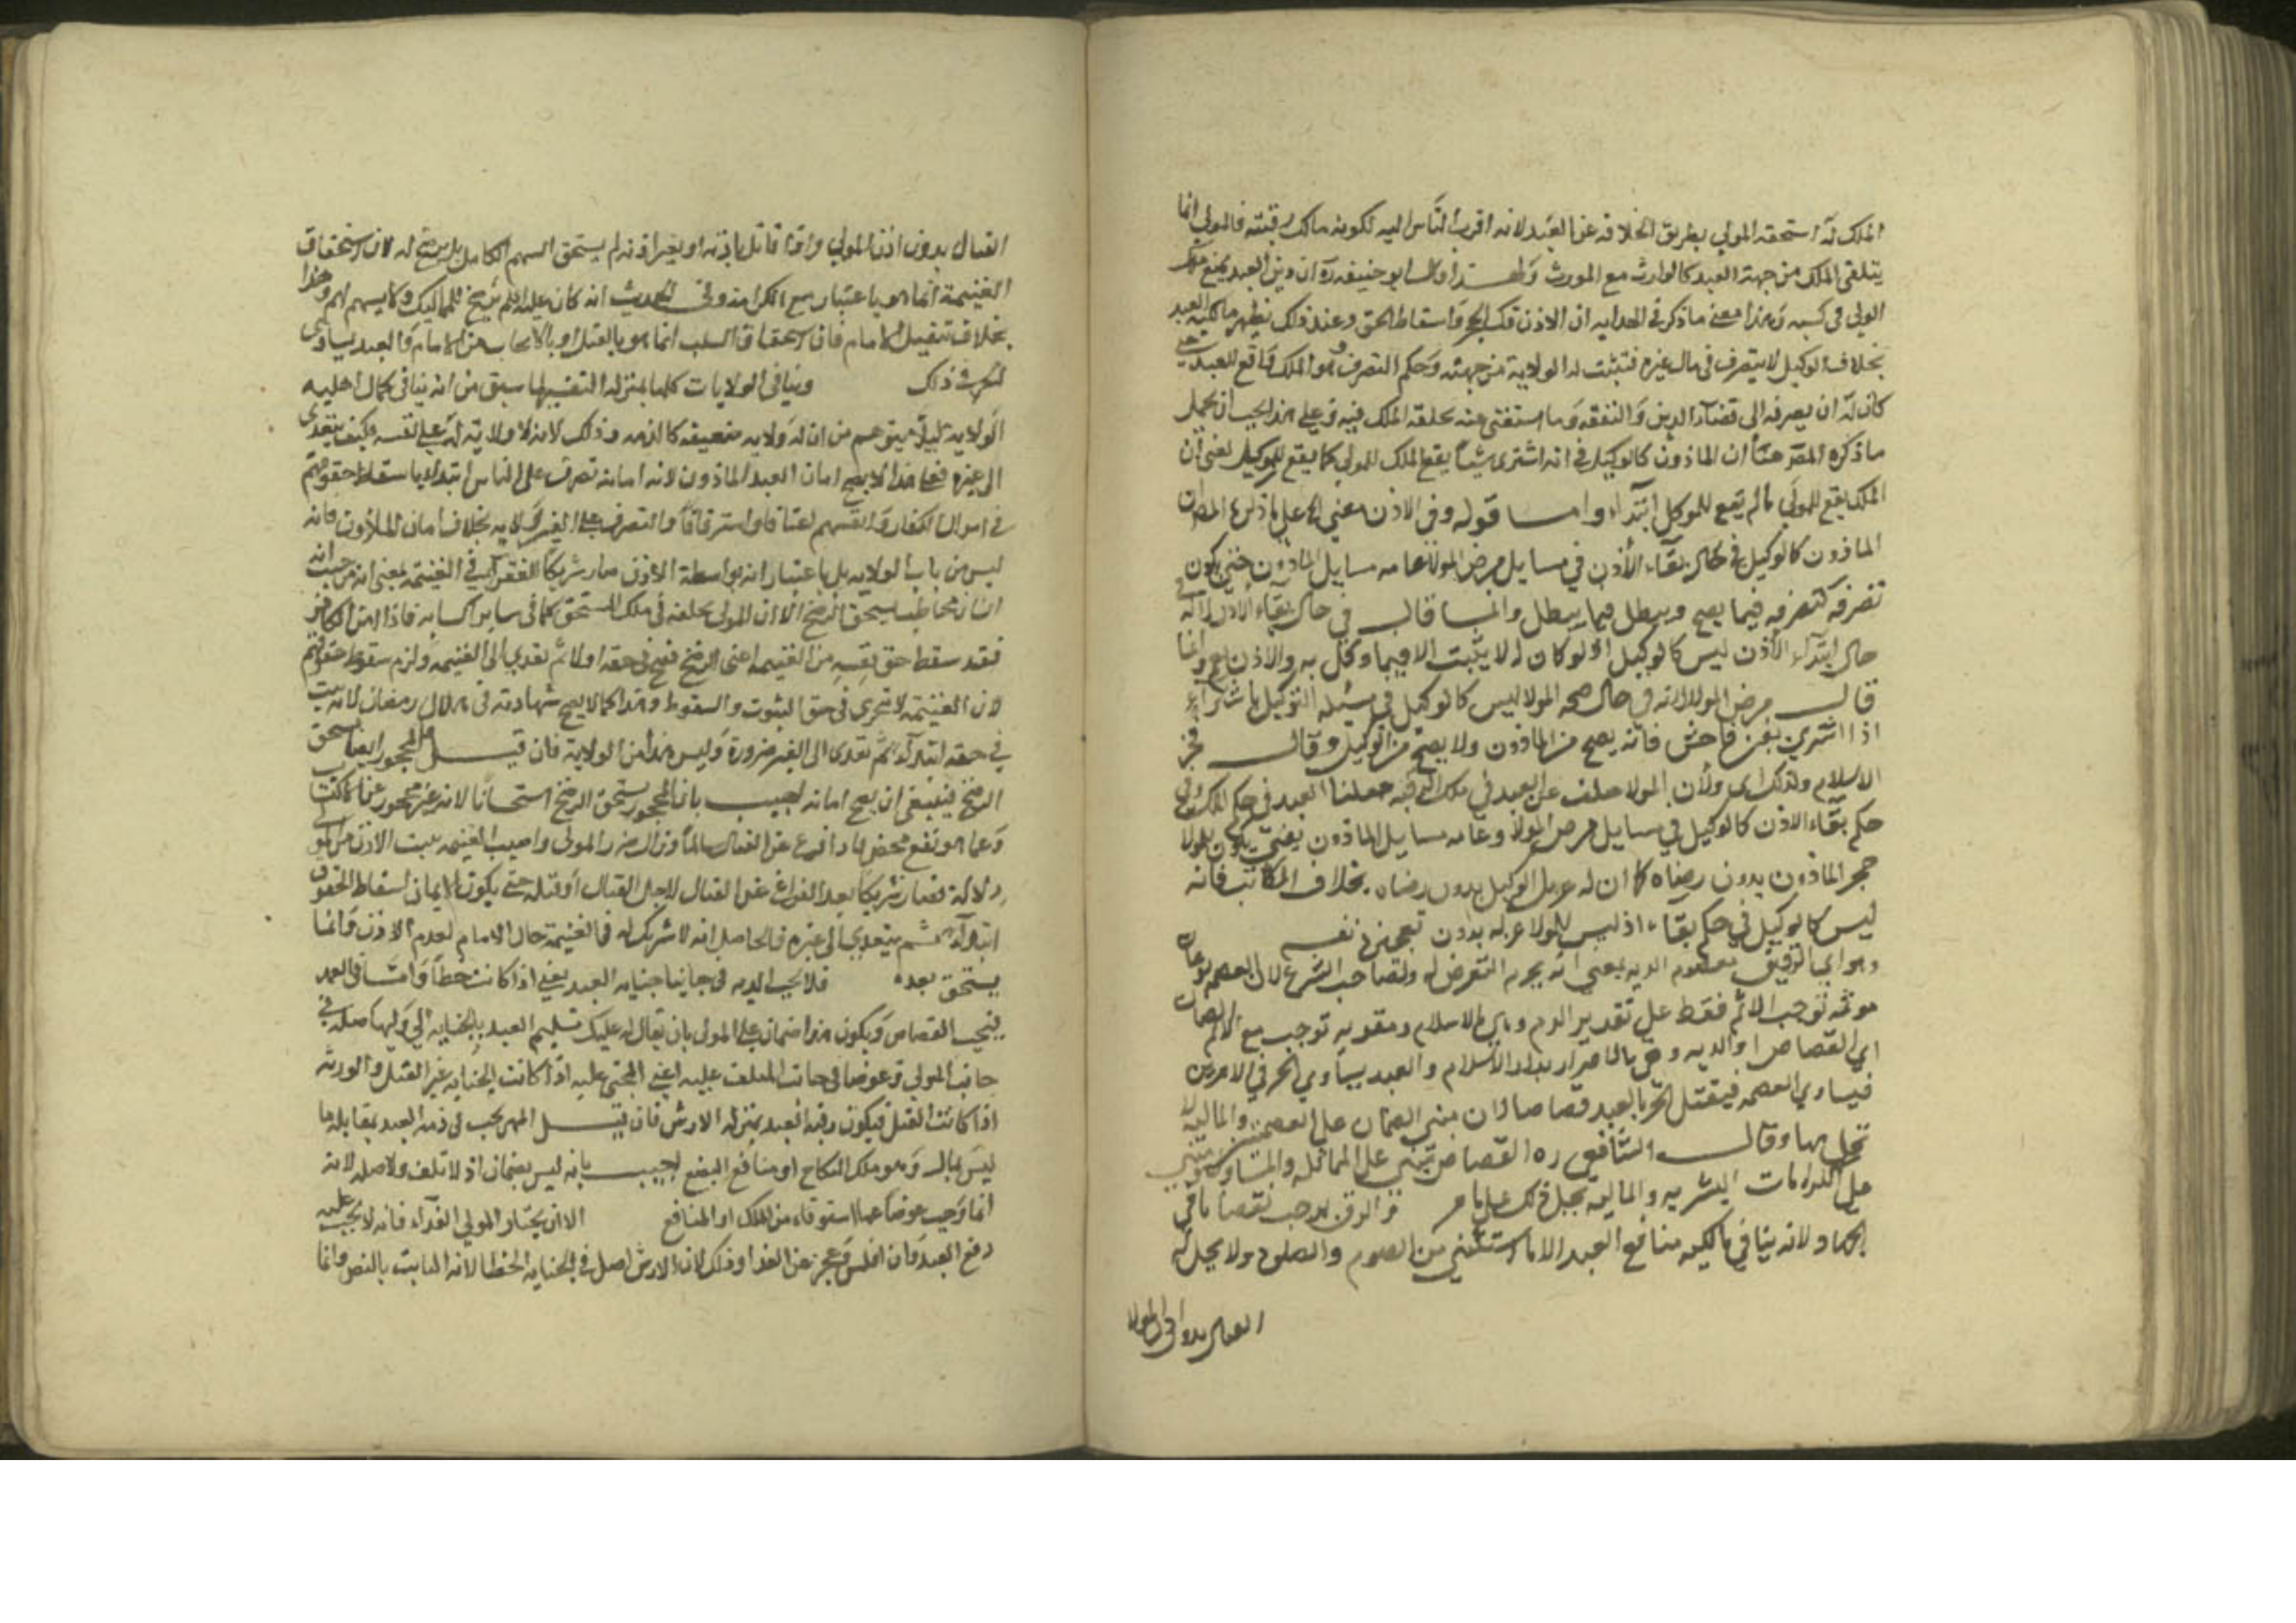 الملك له استحقه المولي بطريق الخلافة عن العبد لانه اقرب الناس اليه لكونه مالك رقبته فالمولي انما
يتلقي الملك من جهة العبد كالوارث مع المورث ولهذا قال ابو حنيفة ره ان دين العبد يمنع ملك
المولي في كسبه وهذا معني ما ذكر في الهدايه ان الاذن فك الحجر واسقاط الحق وعند ذلك يظهر مالكية العبد
بخلاف الوكيل لانه يتصرف في مال غيره فتثبت له الولاية من جهته وحكم التصرف وهو الملك واقع للعبد حتي
كان له ان يصرفه الى قضاء الدين والنفقه وما استغني عنه يخلفه الملك فيه وعلي هذا يجب ان يحمل
ما ذكره المصر هنا ان الماذون كالوكيل في انه اشتري شيئا يقع الملك للمولي كما يقع للموكيل يعني ان
الملك يقع للمولي ثم يقع للموكل ابتداء واما قوله وفي الاذن معني
الماذون كالوكيل في حال بقاء الأذن في مسايل مرض المولا عامه مسايل الماذون حتي يكون
تصرفه كتصرفه فيما يصح ويبطل فيما يبطل وانما قال في حال بقاء الاذن لانه في
حال ابتداء الأذن ليس كالوكيل اذ لو كان له لا يثبت الا فيما وكل به والاذن يعم وانما
قال مرض المولا لانه في حال صحه المولا ليس كالوكيل في مسئلة التوكيل
اذا اشتري بغبن فاحش فانه يصح من الماذون ولا يصح من الوكيل وقال فخر
الاسلام ولذلك اي ولأن المولا خلف عن العبد في ملك الرقبه جعلنا العبد في حكم الملك وفي
حكم بقاء الاذن كالوكيل في مسايل مرض المولا وعامه مسايل الماذون يعني يكون للمولا
حجر الماذون بدون رضاه كما ان له عزل الوكيل بدون رضاه بخلاف المكاتب فانه
ليس كالوكيل في حكم بقاء اذ ليس للمولا عزله بدون تعجيزه نفسه
وهو اي الرقيق معصوم الدم بمعني انه يحرم التعرض له ولصاحب الشرع لان العصمه نوعان
موثمه توجب الاثم فقط علي تقدير الدم وهي بالاسلام ومقومه توجب مع الاثم الضمان
اي القصاص او الديه وهي بالاحراز بدار الاسلام والعبد يساوي الحر في الامرين
فيساوي العصمه فيقتل الحر بالعبد قصاصا لان مبني الضمان علي العصمتين والماليه لا
تخل بها وقال الشافعي ره القصاص يبتني علي المماثله والمساواه
علي الكرامات البشريه والماليه تخل بذلك علي ما مر والرق يوجب نقصا في
الجهاد لانه ينافي مالكيه منافع العبد الا ما استثني من الصوم والصلوه ولا يحل له
القتال بدون اذن المولا
القتال بدون اذن المولي واذا قاتل باذنه او بغير اذنه لم يستحق السهم الكامل بل يرضخ له لان استحقاق
الغنيمة انما هو باعتبار مع الكرامه وفي الحديث انه كان عليه السلم يرضخ للمماليك ولا يسهم لهم وهذا
بخلاف تنفيل الامام فان استحقاق السلب انما هو بالقتل او بالايجاب من الامام والعبد يساوي
الحر في ذلك وينافي الولايات كلها بمنزلة التفسير لما سبق من انه ينافي كمال اهليه
الولايه ليلا يتوهم من ان له ولايه ضعيفه كالذمه وذلك لانه لا ولاية له علي نفسه وكيف يتعدى
الي غيره فعلي هذا لا يصح امان العبد الماذون لانه امانه تصرف علي الناس ابتداء باسقاط حقوقهم
في اموال الكفار وانفسهم اغتناما واسترقاقا والتصرف علي الغير ولايه بخلاف امان الماذون فانه
ليس من باب الولايه بل باعتبار انه بواسطة الاذن صار شريكا للغزاة في الغنيمه بمعنى انه من حيث انه
انسان مخاطب يستحق الرضخ الا ان المولى يخلفه في ملك المستحق كما في ساير اكسابه فاذا امن الكافر
فقد سقط حق نفسه من الغنيمه اعني الرضخ فصح في حقه اولا ثم تعدى الى الغنيمه ولزم سقوط حقوقهم
لان الغنيمه لا تتجزى في حق الثبوت والسقوط وهذا كما لا يصح شهادته في هلال رمضان لانه يثبت
في حقه ابتداء ثم تعدى الى الغير ضرورة وليس هذا من الولاية فان قيل المحجور ايضا يستحق
الرضخ فينبغي ان يصح امانه اجيب بان المحجور يستحق الرضخ استحسانا لانه غير محجور عن الاكتساب
وعما هو نفع محض فاذا فرغ عن القتال سالما وزال ضرر المولى واصيب الغنيمه يثبت الاذن من المولى
دلالة فصار شريكا بعد الفراغ عن القتال لا حال القتال او قبله حتى يكون الايمان اسقاط الحقوق
ابتداء ثم يتعدى الى غيره فالحاصل انه لا شركة له في الغنيمة حال الامام لعدم الاذن وانما
يستحق بعده فلا يجب الديه في جانبا جنايه العبد يعني اذا كانت خطأ واما في العمد
فيجب القصاص ويكون هذا ضمان علي المولى بان يقال له عليك تسليم العبد بالجنايه الي وليها صله في
جانب المولي وعوضا في جانب المتلف عليه اعني المجني عليه اذا كانت الجنايه غير القتل والورثه
اذا كانت القتل فيكون رقبة العبد بمنزله الارش فان قيل المهر يجب في ذمه العبد بمقابله ما
ليس بمال وهو ملك النكاح او منافع البضع اجيب بانه ليس بضمان اذ لا تلف ولا صله لانه
انما وجب عوضا عما استوفاه من الملك او المنافع الا ان يختار المولي الفداء فانه لا يجب عليه
دفع العبد وان افلس وعجز عن الفدا وذلك لان الارش اصل في الجنايه الخطا لانه الثابت بالنص وانما